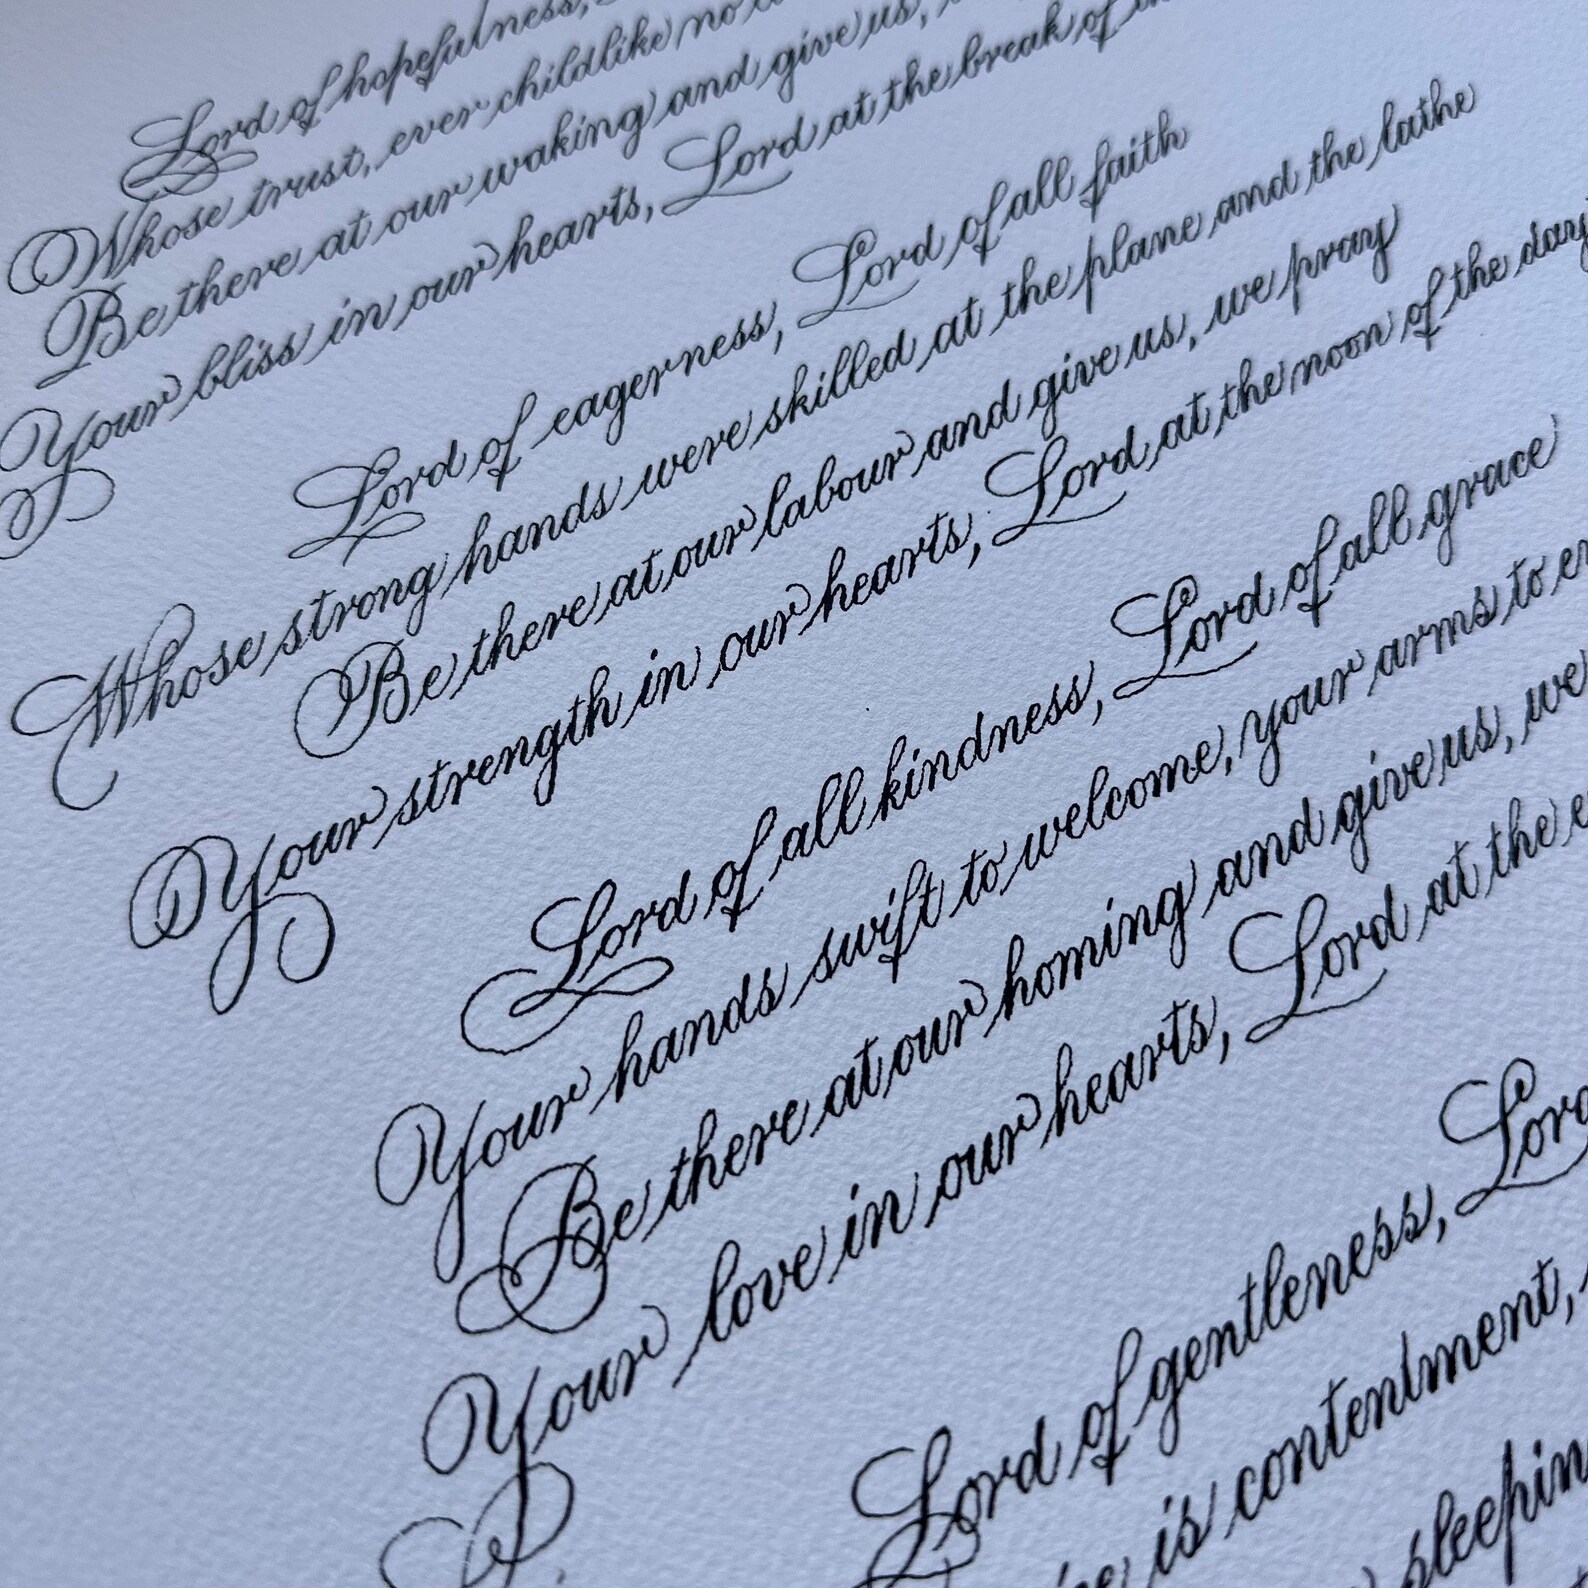 Lord of hopefulness,
Whose trust, ever childlike no
Be there at our waking and give us,
Your bliss in our hearts, Lord at the break of
Lord of eagerness, Lord of all faith
Whose strong hands were skilled at the plane and the lathe
Be there at our labour and give us, we pray
Your strength in our hearts, Lord at the noon of the day
Lord of all kindness, Lord of all grace
Your hands swift to welcome, your arms to
Be there at our homing and give us, we
Your love in our hearts, Lord at the
Lord of gentleness, Lord
is contentment,
sleeping